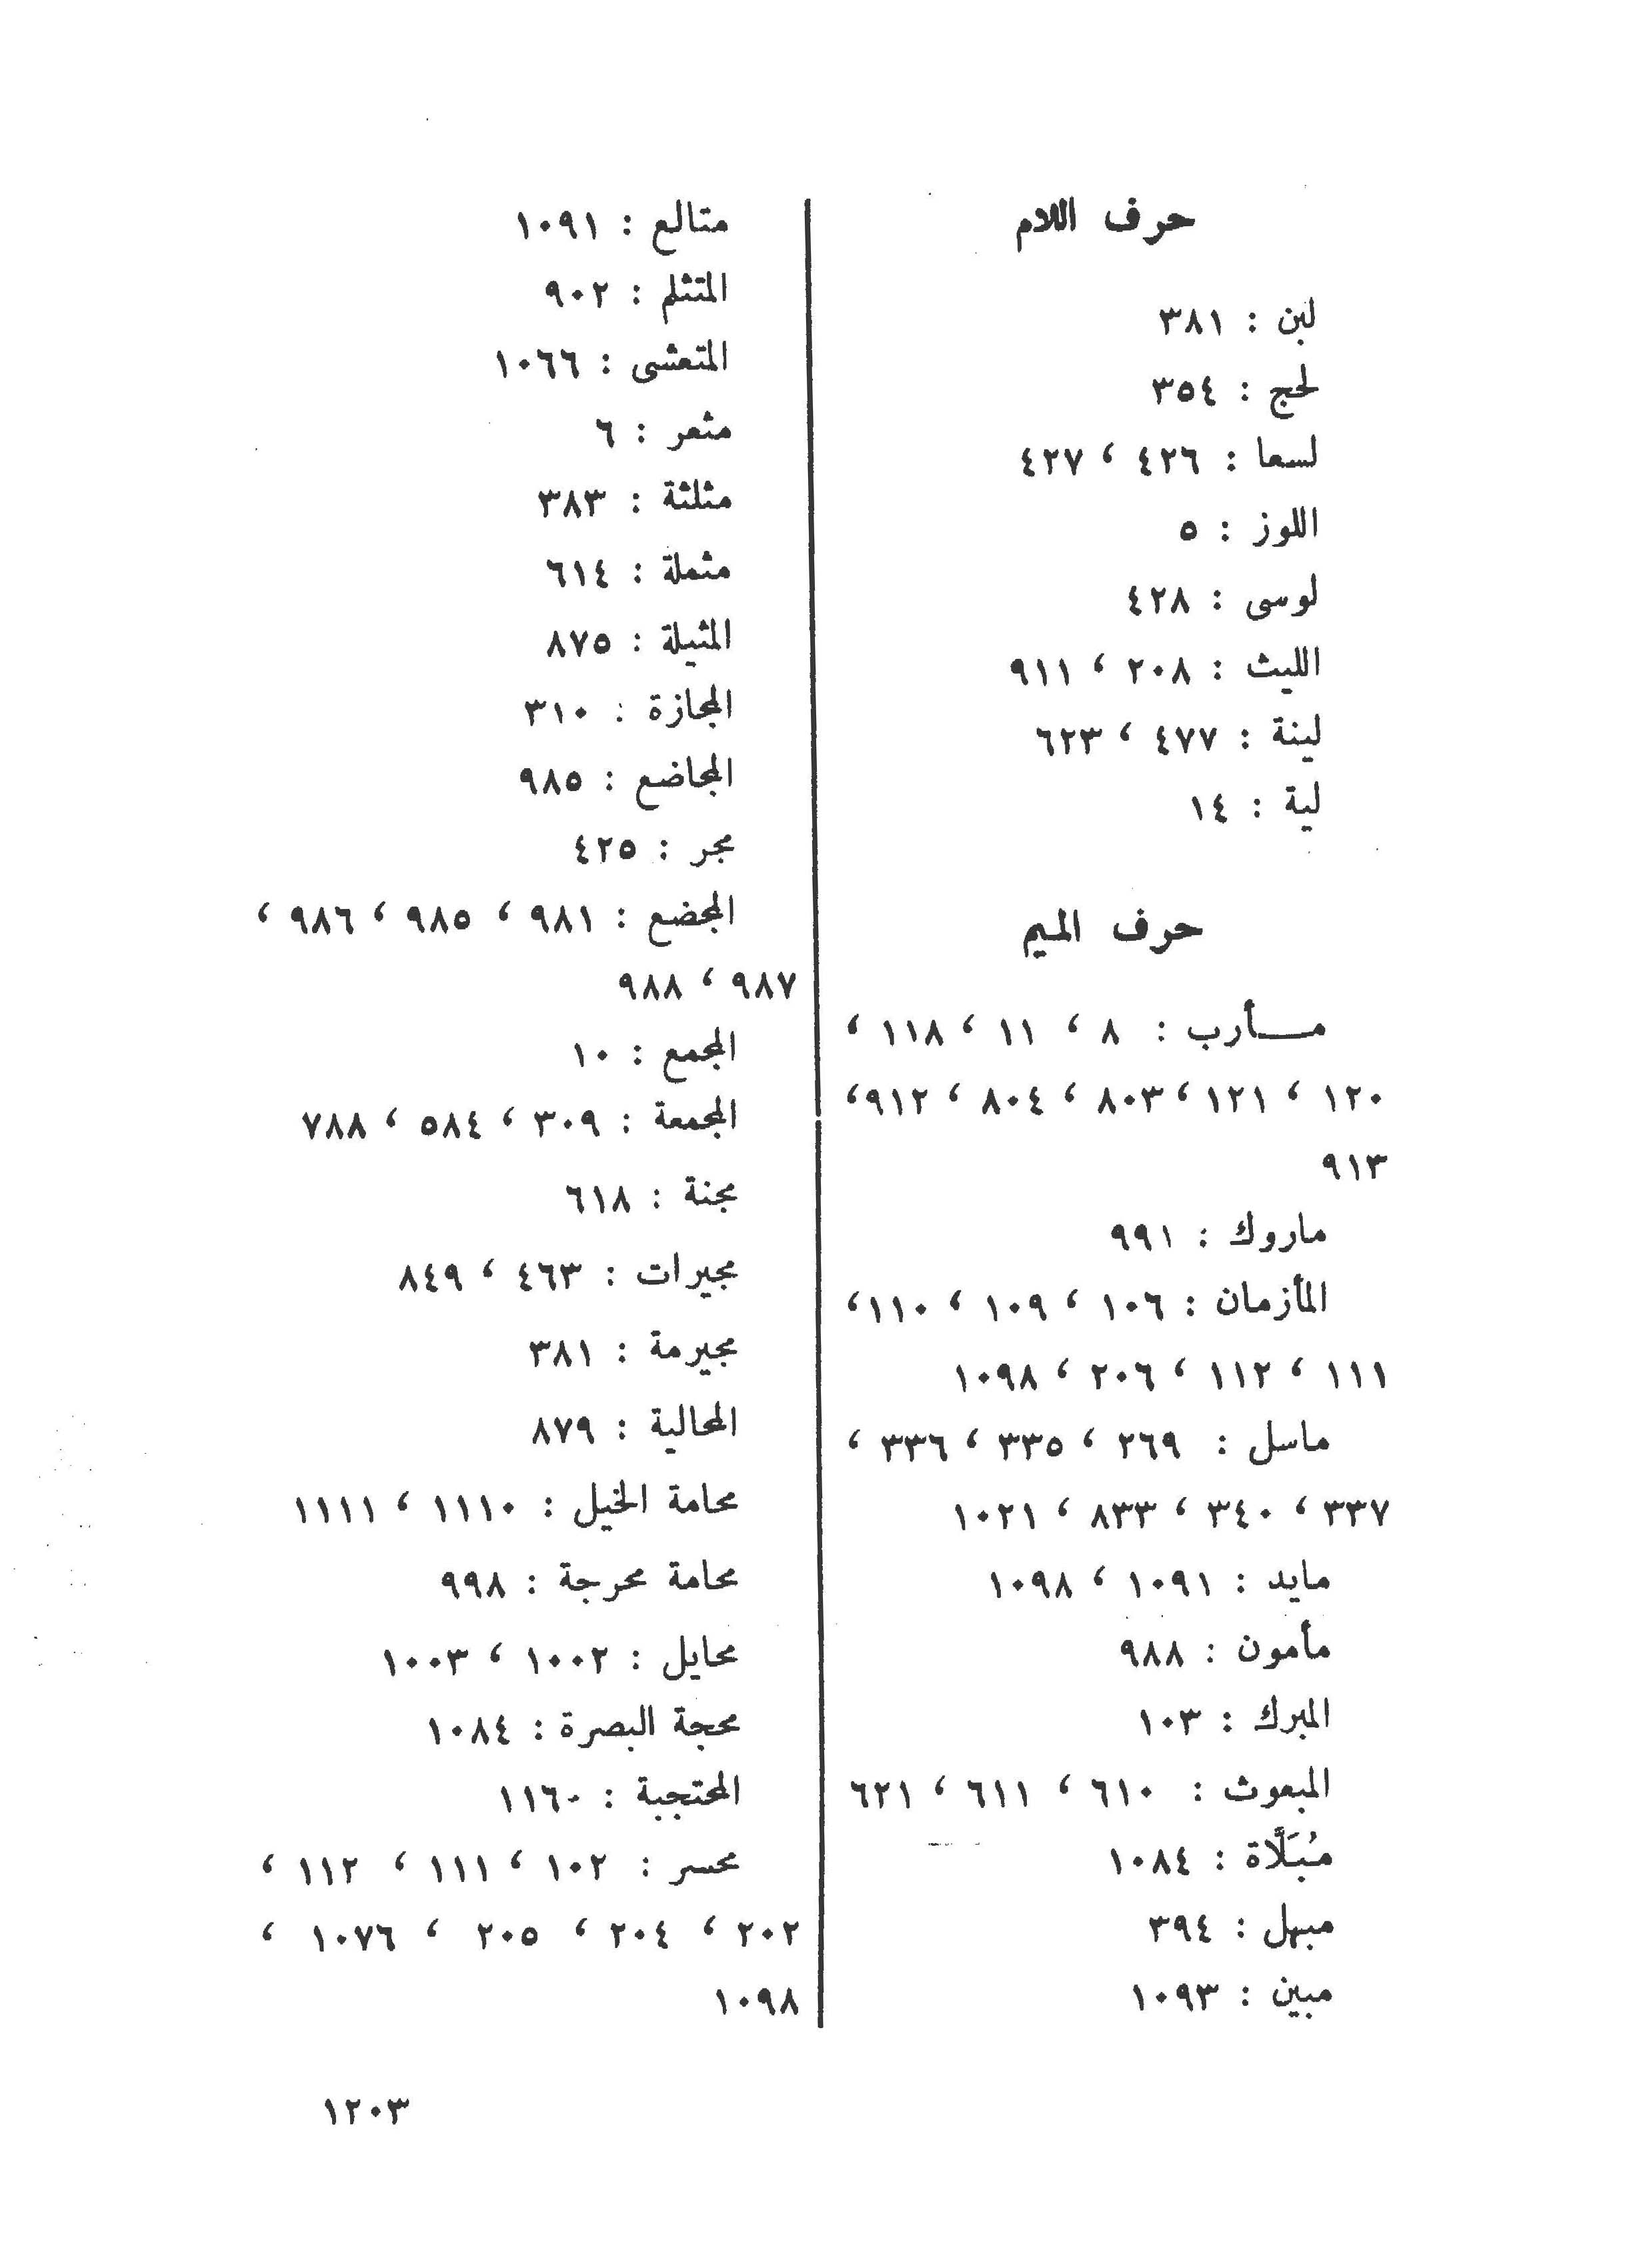 حرف اللام
لبن : ٣٨١
لحج : ٣٥٤
لسعا : ٤٢٦ ، ٤٢٧
اللوز : ٥
لوسى : ٤٢٨
الليث : ٢٠٨ ، ٩١١
لينة : ٤٧٧ ، ٦٢٣
لية : ١٤
حرف الميم
مـــأرب : ٨ ، ١١ ، ١١٨ ،
١٢٠ ، ١٢١ ، ٨٠٣ ، ٨٠٤ ، ٩١٢ ،
٩١٣
ماروك : ٩٩١
المأزمان : ١٠٦ ، ١٠٩ ، ١١٠ ،
١١١ ، ١١٢ ، ٢٠٦ ، ١٠٩٨
ماسل : ٢٦٩ ، ٣٣٥ ، ٣٣٦ ،
٣٣٧ ، ٣٤٠ ، ٨٣٣ ، ١٠٢١
مايد : ١٠٩١ ، ١٠٩٨
مأمون : ٩٨٨
المبرك : ١٠٣
المبعوث : ٦١٠ ، ٦١١ ، ٦٢١
مُبَلَّاة : ١٠٨٤
مبهل : ٣٩٤
مبين : ١٠٩٣
متالع : ١٠٩١
المتثلم : ٩٠٢
المتعشى : ١٠٦٦
مثعر : ٦
مثلثة : ٣٨٣
مثملة : ٦١٤
المثيلة : ٨٧٥
المجازة : ٣١٠
المجاضع : ٩٨٥
مجر : ٤٢٥
المجضع : ٩٨١ ، ٩٨٥ ، ٩٨٦ ،
٩٨٧ ، ٩٨٨
المجمع : ١٠
المجمعة : ٣٠٩ ، ٥٨٤ ، ٧٨٨
مجنة : ٦١٨
مجيرات : ٤٦٣ ، ٨٤٩
مجيرمة : ٣٨١
المحالية : ٨٧٩
محامة الخيل : ١١١٠ ، ١١١١
محامة محرجة : ٩٩٨
محايل : ١٠٠٢ ، ١٠٠٣
محجة البصرة : ١٠٨٤
المحتجبة : ١١٦٠
محسر : ١٠٢ ، ١١١ ، ١١٢ ،
٢٠٢ ، ٢٠٤ ، ٢٠٥ ، ١٠٧٦ ،
١٠٩٨
١٢٠٣